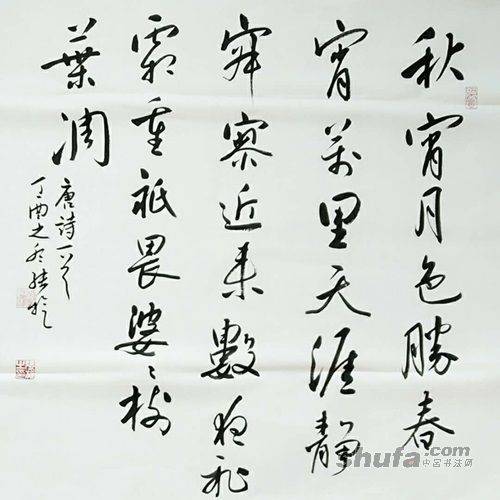 秋宵月色勝春
宵萬里天涯靜
寂寥近来數夜飛
霜重祇畏婆〻樹
葉凋
唐詩一首
丁酉之冬
shufa.com
中国书法网